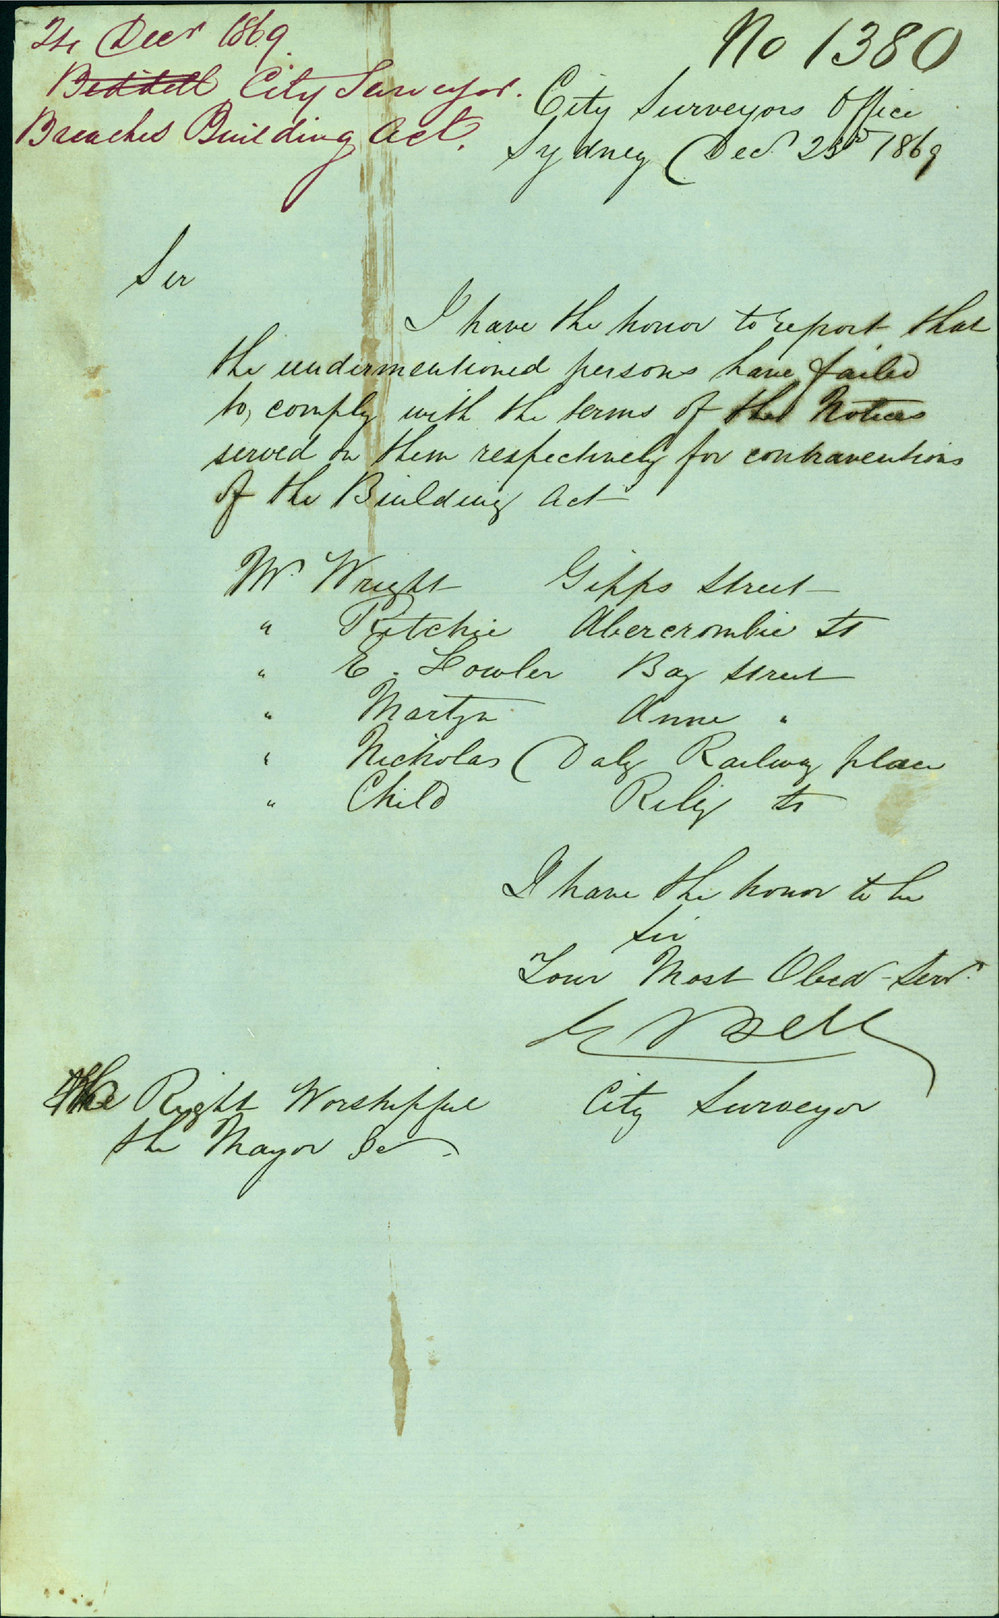 24 Decr 1869.
Beddell City Surveyor.
Breaches Building Act.
No 1380
City Surveyors Office
Sydney Decr 23rd 1869
Sir
I have the honor to report that
the undermentioned persons have failed
to, comply with the terms of the Notices
served on them respectively for contraventions
of the Building Act
Mr. Wright Gipps Street
" Ritchie Abercrombie St
" E. Fowler Bay Street
" Martyn Anne "
" Nicholas Daly Railway place
" Child Riley St
I have the honor to be
Sir
Your Most Obed Serv.
Bell
City Surveyor
The Right Worshipful
the Mayor &c